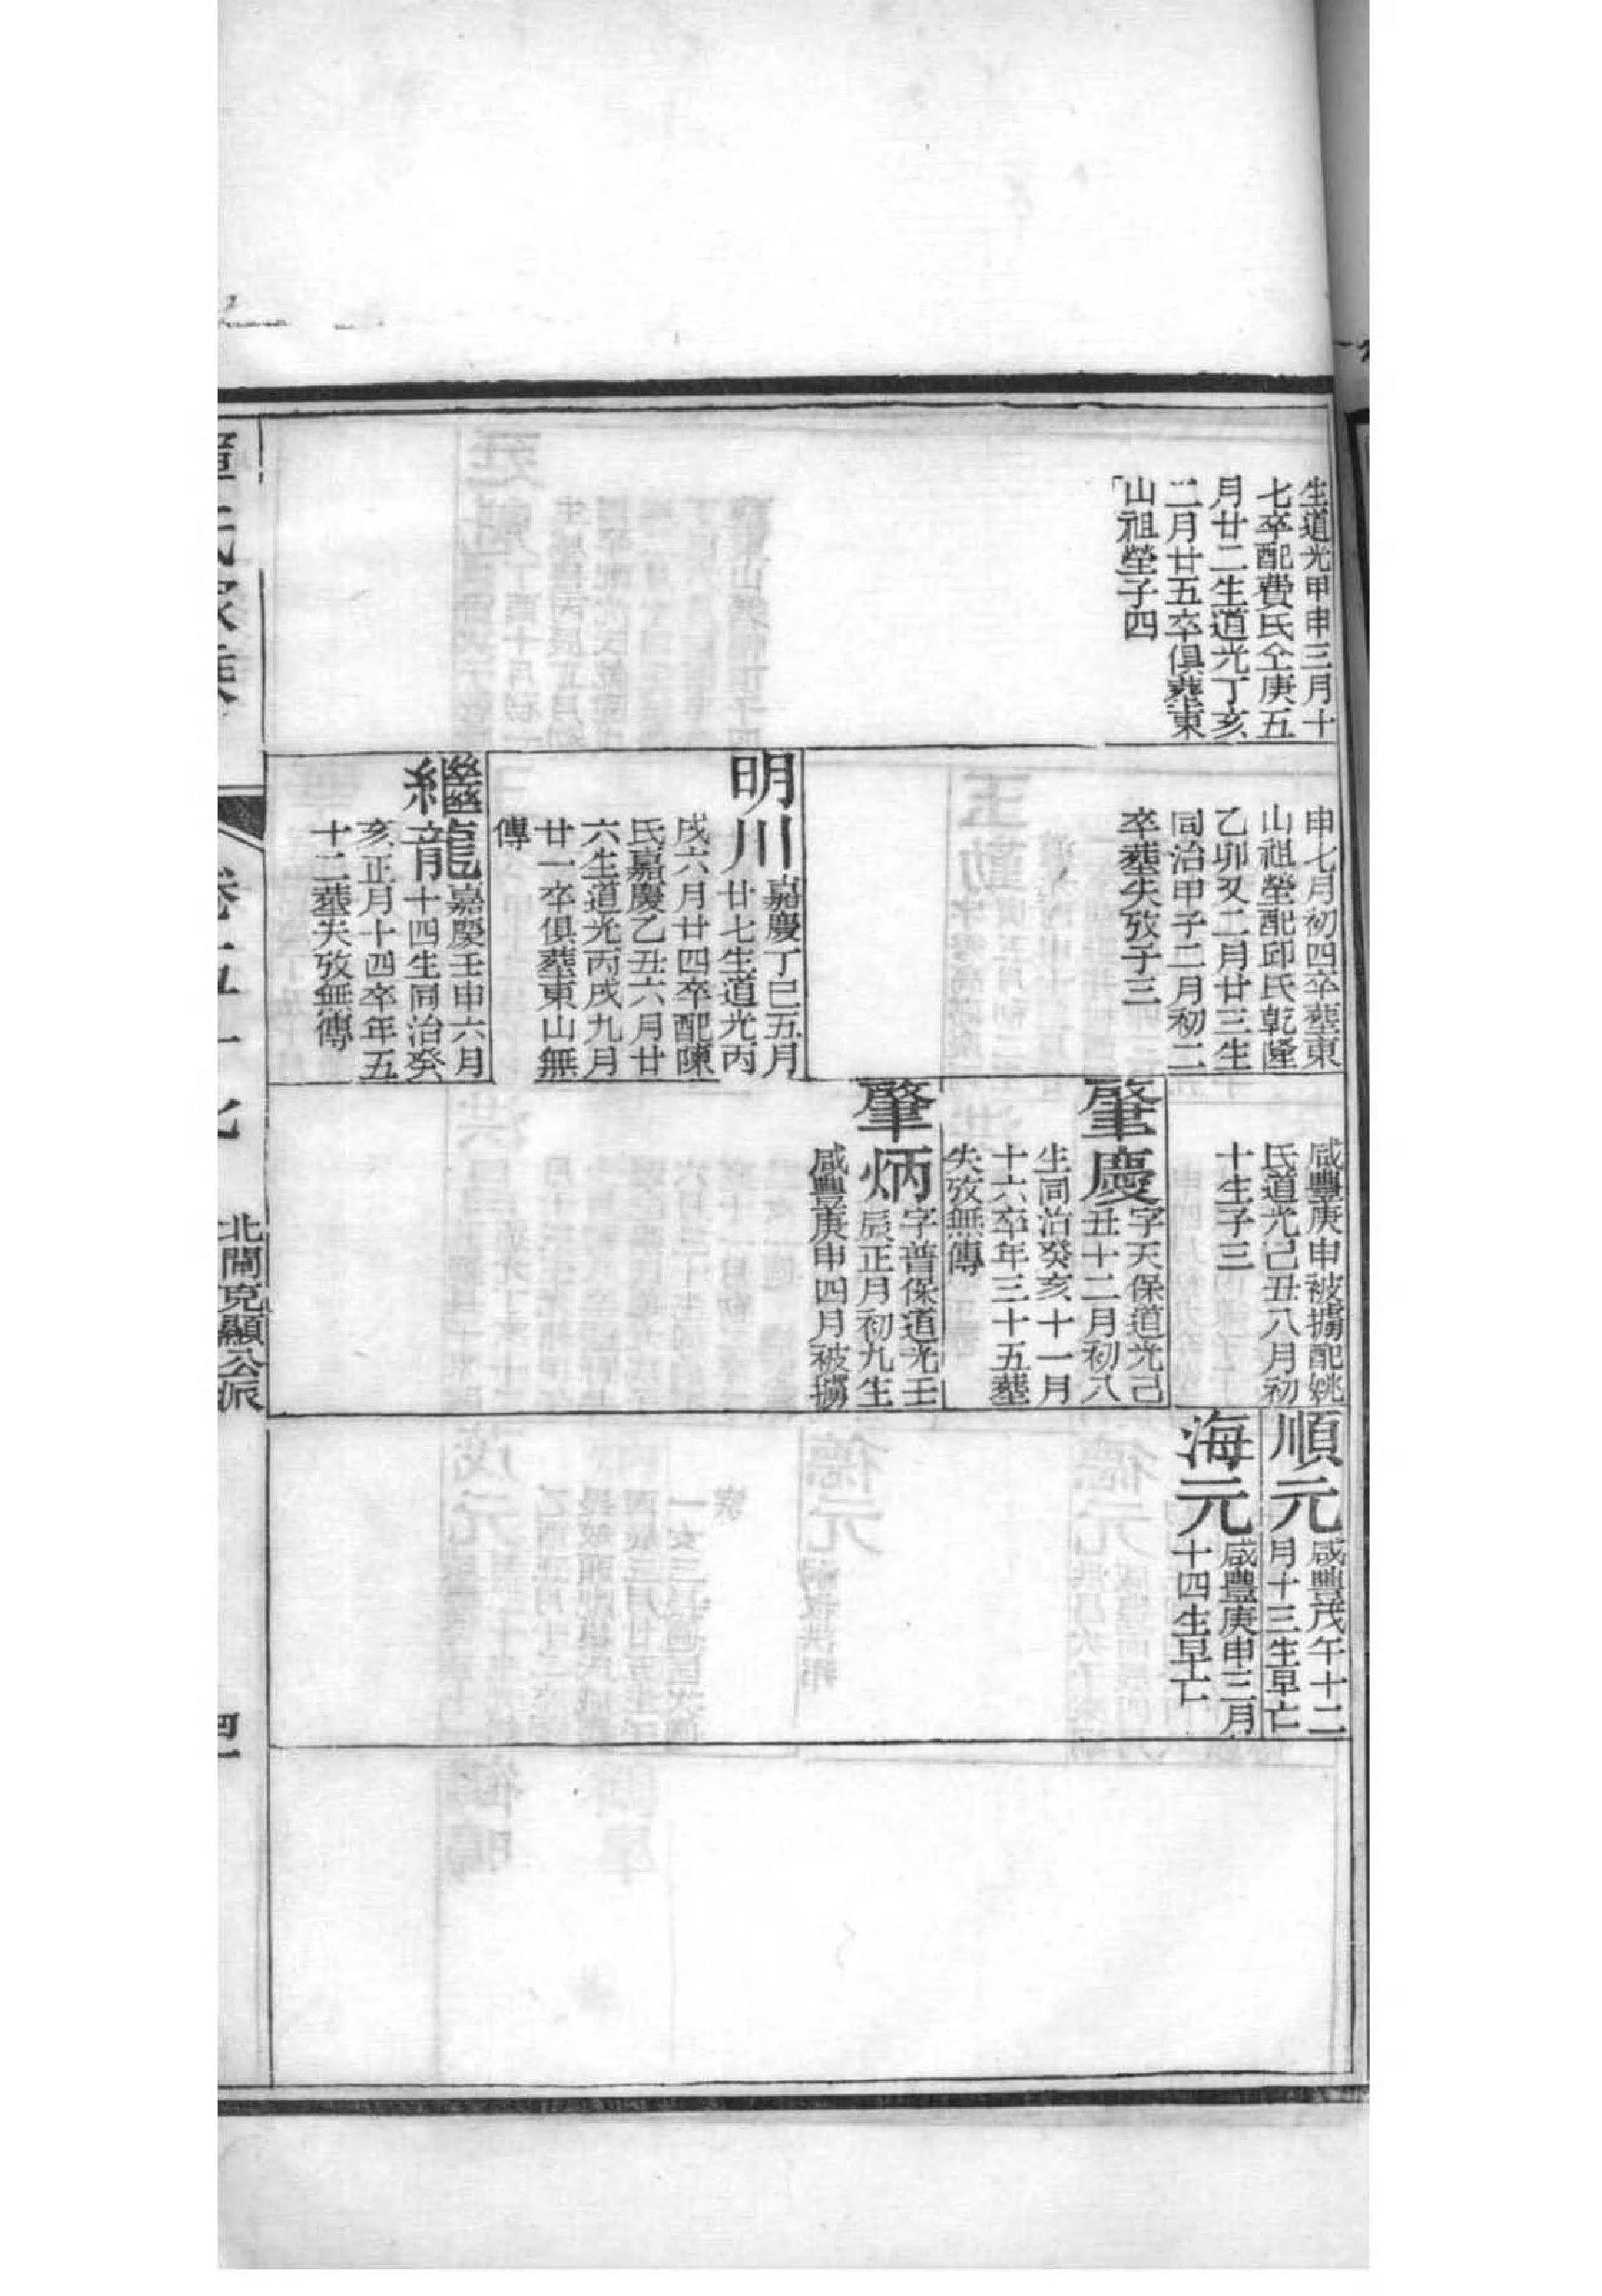 生道光甲申三月十
七卒配費氏仝庚五
月廿二生道光丁亥
二月廿五卒俱葬東
山祖塋子四
申七月初四卒葬東
山祖塋配邱氏乾隆
乙卯又二月廿三生
同治甲子二月初二
卒葬失攷子三
明川
嘉慶丁巳五月
廿七生道光丙
戌六月廿四卒配陳
氏嘉慶乙丑六月廿
六生道光丙戌九月
廿一卒俱葬東山無
傳
繼龍
嘉慶壬申六月
十四生同治癸
亥正月十四卒年五
十二葬失攷無傳
咸豐庚申被擄配姚
氏道光己丑八月初
十生子三
肇慶
字天保道光己
丑十二月初八
生同治癸亥十一月
十六卒年三十五葬
失攷無傳
肇炳
字普保道光壬
辰正月初九生
咸豐庚申四月被擄
順元
咸豐戊午十二
月十三生早亡
海元
咸豐庚申三月
十四生早亡
氏家乘
卷五十七
北閘克顯公派
四